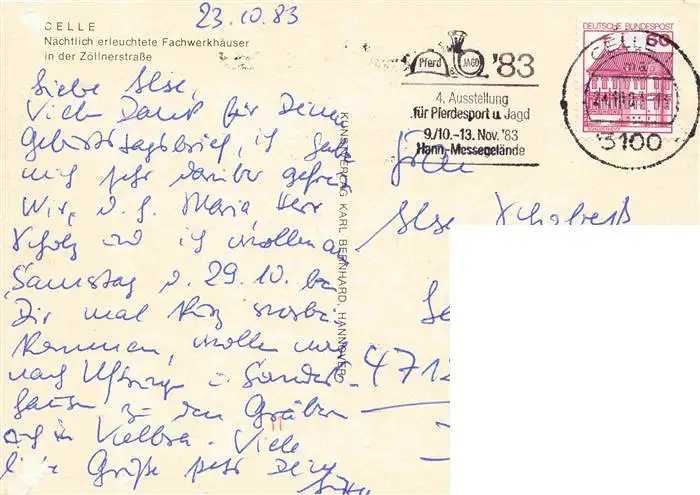 23.10.83
CELLE
Nächtlich erleuchtete Fachwerkhäuser
in der Zöllnerstraße
Liebe Ilse,
Vielen Dank für Deinen
Geburtstagsbrief, ich habe
mich sehr darüber gefreut
Wir, d. h. Maria, Herr
Scholz und ich wollen am
Samstag d. 29.10. bei
Dir mal kurz vorbei
kommen, wollen
nach
hausen zu den Gräbern
auf Kelbra. Viele
liebe Grüße
KUNSTVERLAG KARL BERNHARD, HANNOVER
Pferd & JAGD '83
4. Ausstellung
für Pferdesport u. Jagd
9./10.-13. Nov. '83
Hann.-Messegelände
DEUTSCHE BUNDESPOST
60
CELLE
3100
Frau
Ilse
471